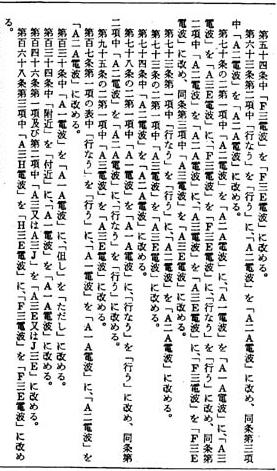 第五十四条中「F三電波」を「F三E電波」に改める。
第六十三条第二項中「行なう」を「行う」に、「A二電波」を「A二A電波」に改め、同条第三項
中「A二電波」を「A二A電波」に改める。
第七十条の二第一項中「A二電波」を「A二A電波」に、「A一電波」を「A一A電波」に、「A三
電波」を「A三E電波」に、「F三電波」を「F三E電波」に、「行なう」を「行う」に改め、同条第
二項中「A二電波」を「A二A電波」に、「A三電波」を「A三E電波」に、「F三電波」を「F三E
電波」に改め、同条第三項中「A三電波」を「A三E電波」に改める。
第七十条の三第二項中「行なう」を「行う」に、「A二電波」を「A二A電波」に改める。
第七十三条の二第一項中「A三電波」を「A三E電波」に改める。
第七十四条中「A二電波」を「A二A電波」に改める。
第七十八条の二第一項中「A二電波」を「A二A電波」に、「行なう」を「行う」に改め、同条第
二項中「A二電波」を「A二A電波」に、「行なう」を「行う」に改める。
第九十五条の二第一項中「A三電波」を「A三E電波」に改める。
第百七条第一項の表中「行なう」を「行う」に、「A一電波」を「A一A電波」に、「A二電波」を
「A二A電波」に改める。
第百三十条中「A一電波」を「A一A電波」に、「但し」を「ただし」に改める。
第百四十三条中「附近」を「付近」に、「A一電波」を「A一A電波」に改める。
第百四十六条第一項及び第二項中「A三又はA三J」を「A三E又はJ三E」に改める。
第百六十八条第三項中「A三H電波」を「H三E電波」に、「F三電波」を「F三E電波」に改め
る。